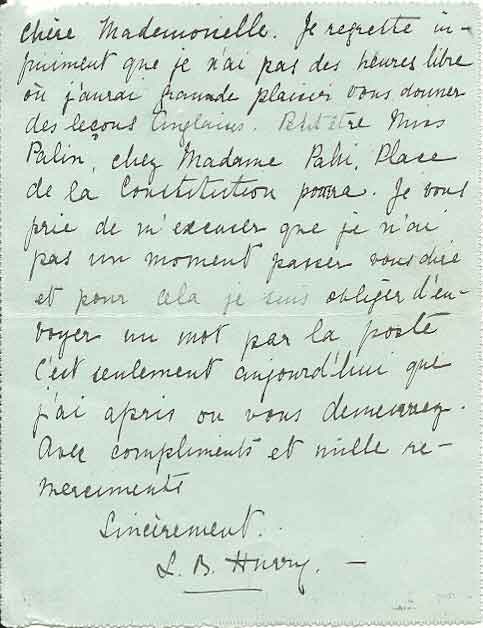 Chère Mademoiselle. Je regrette in-
finiment que je n'ai pas des heures libre
où j'aurai grande plaisir vous donner
des leçons Anglaius. Peut être Miss
Palin, chez Madame Pahi, Place
de la Constitution pourra. Je vous
prie de m'excuser que je n'ai
pas un moment passer vous dire
et pour cela je suis obliger d'en-
voyer un mot par la poste
C'est seulement aujourd'hui que
j'ai apris ou vous demeurrez.
Avec compliments et mille re-
merciments
Sincèrement.
L. B. Hurry. —